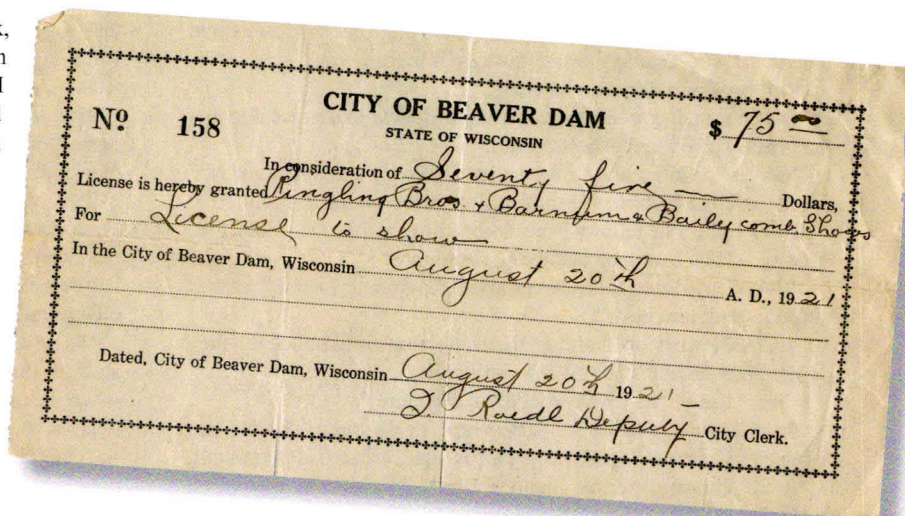 CITY OF BEAVER DAM
STATE OF WISCONSIN
Nº 158
$ 75 00
In consideration of Seventy five — Dollars,
License is hereby granted Ringling Bros. + Barnum & Baily comb. Shows
For License to show
In the City of Beaver Dam, Wisconsin August 20th A. D., 1921
Dated, City of Beaver Dam, Wisconsin August 20th 1921 —
Roedl Deputy City Clerk.